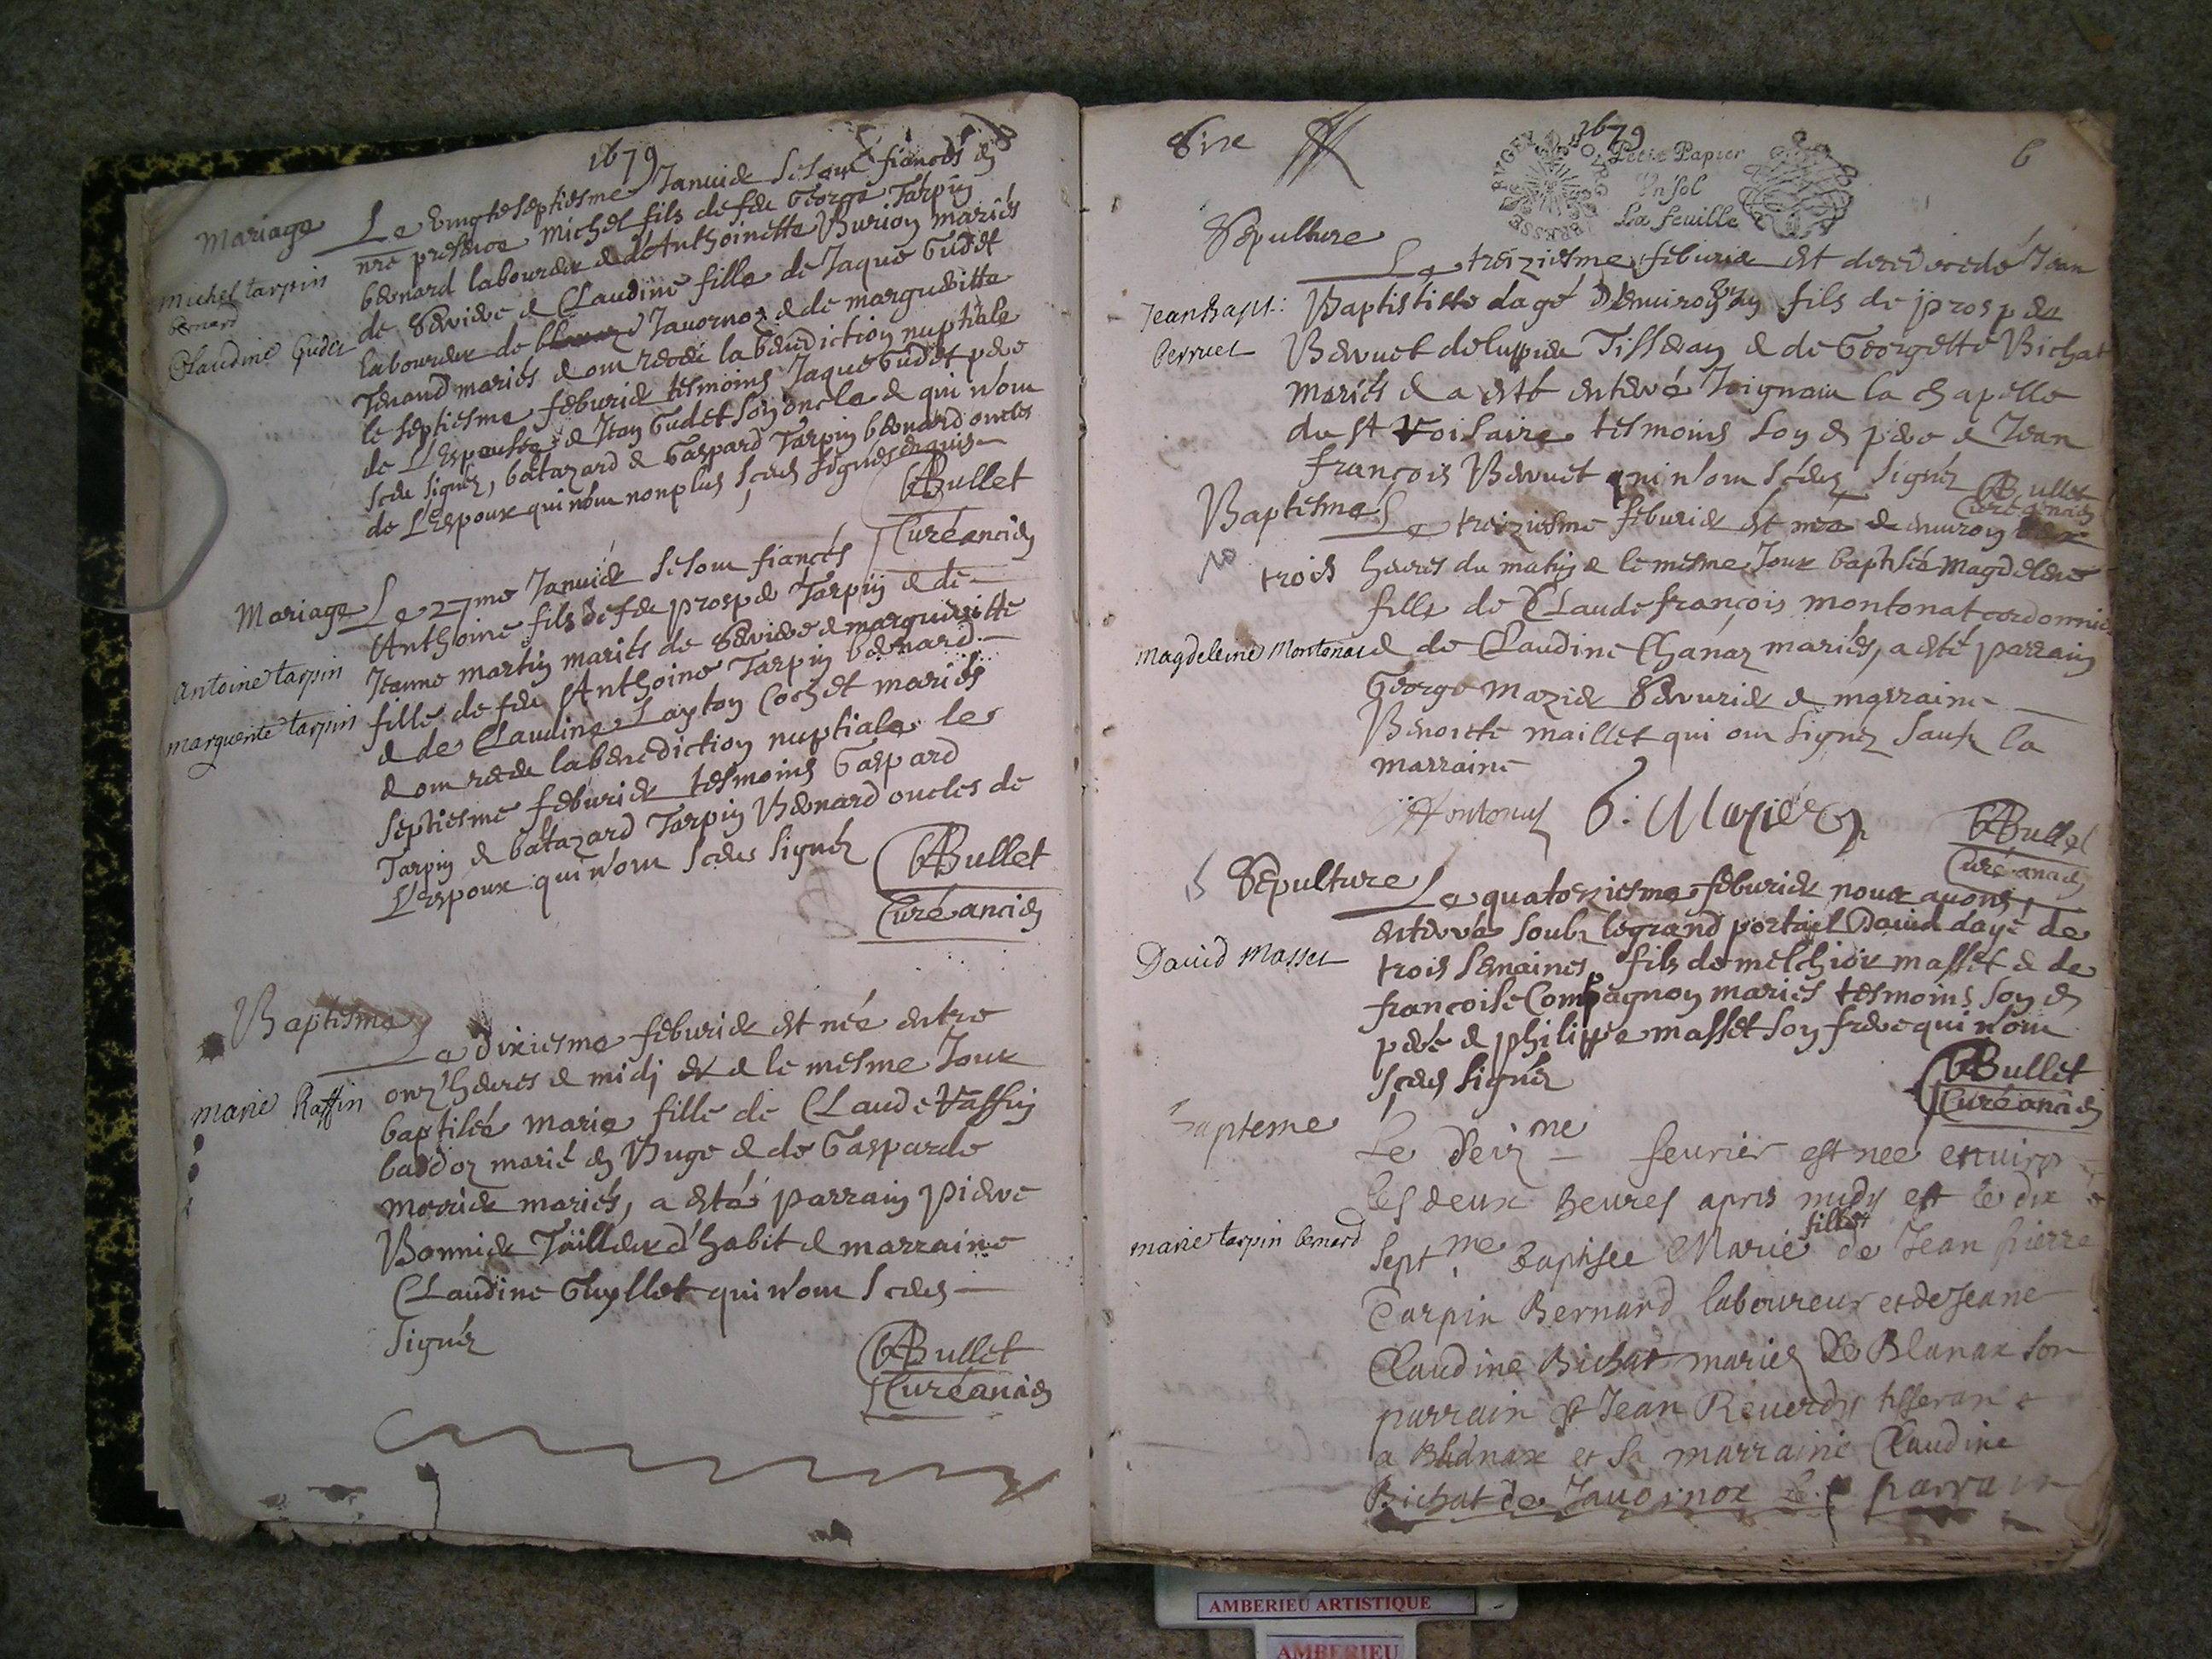 1679
Mariage
Le vingteseptiesme Januier se sont fiancés en
nre presence michel fils de feu George Tarpin
bernard laboureur & d'Anthoinette Burion mariés
michel tarpin
bernard
Claudine Gudet
de & Claudine fille de Jaque Gudet
laboureur de Jauornoz & de margueritte
Tenand mariés & ont receu la benediction nuptiale
le septiesme feburier tesmoins Jaque Gudet pere
de L'Espousée & Jean Gudet son oncle & qui n'ont
sceu signer, batazard & Gaspard Tarpin bernard oncles
de L'Espoux qui n'ont non plus sceus signer
Bullet
Curé ancien
Mariage
Le 27me Januier se sont fiancés
Anthoine fils de feu prosper Tarpin & de
Jeanne martin mariés de & margueritte
Antoine tarpin
fille de feu Anthoine Tarpin bernard
marguerite tarpin
& de Claudine Layton Cochet mariés
& ont receu la benediction nuptiale le
septiesme feburier tesmoins Gaspard
Tarpin & batazard Tarpin Bernard oncles de
L'Espoux qui n'ont sceus signer
Bullet
Curé ancien
Baptesme
Le dixiesme feburier est née entre
onz' heures & midj & le mesme Jour
marie Raffin
baptisée marie fille de Claude Raffin
marié en Buge & de Gasparde
merrier mariés, a esté parrain pierre
Bonnier Tailleur d'habit & marraine
Claudine Guyllot qui n'ont sceus
signer
Bullet
Curé ancien
1679
BUGEY BOURG BRESSE
Petit Papier
Un sol
La feuille
6
Sepulture
Le treiziesme feburier est decedé Jean
Jean Bapt:
Perruet
Baptististe dagé d'enuiron fils de prosper
Berruet Tisseran & de Georgette Bichat
mariés & a esté enterré Joignant la chapelle
du st tesmoins son pere & Jean
françois Berruet qui n'ont sceus signer
Bullet
Curé ancien
Baptesme
Le treiziesme feburier est née enuiron
trois heures du matin & le mesme Jour baptisée Magdeleine
fille de Claude françois montonat cordonnier
Magdeleine Montonat
& de Claudine Chanaz mariés, a esté parrain
George mazier & marraine
Benoitte maillet qui ont signer sauf la
marraine
Montonat G. Mazier
Bullet
Curé ancien
Sepulture
Le quatorziesme feburier nous auons
enterré soubz le grand portail Dauid dagé de
Dauid Masset
trois semaines fils de melchior masset & de
francoise Compagnon mariés tesmoins son
pere & philippe masset son frere qui n'ont
sceus signer
Bullet
Curé ancien
Bapteme
Le Seiz me feurier est nee enuiron
les deux heures apres midy et le dix
marie tarpin bernard
sept me Baptisee Marie fille de Jean pierre
Tarpin Bernard laboureur et de Jeane
Claudine Bichat maries De Blanax son
parrain est Jean Reuerdy tisseran
a Blanax et sa marraine Claudine
Bichat de Jauornox le parrain
AMBERIEU ARTISTIQUE
AMBERIEU